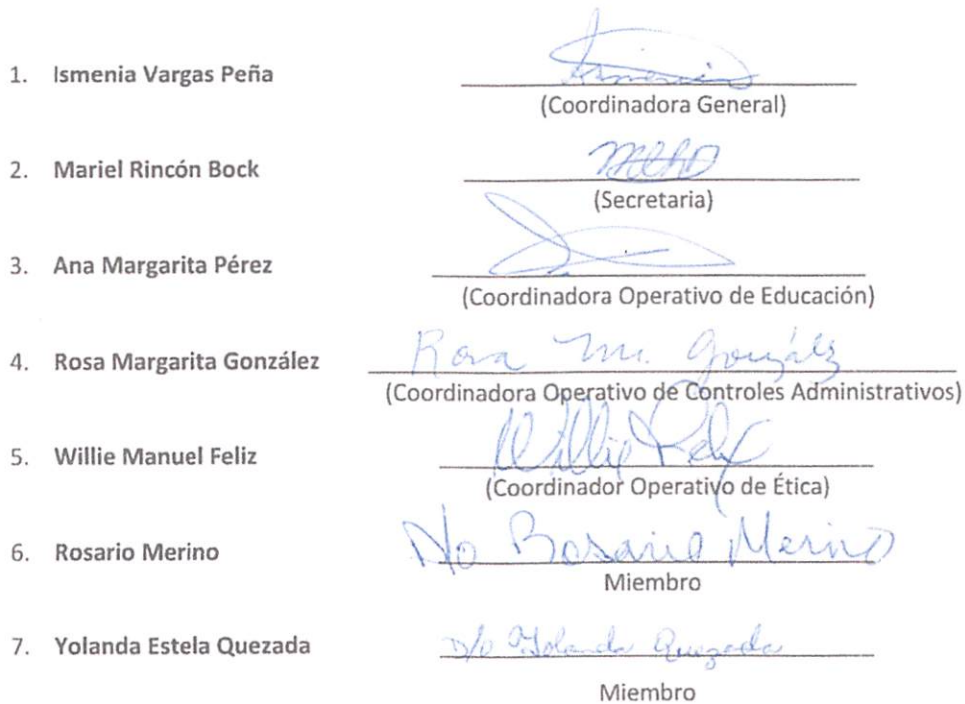 1. Ismenia Vargas Peña
Ismenia
(Coordinadora General)
2. Mariel Rincón Bock
(Secretaria)
3. Ana Margarita Pérez
(Coordinadora Operativo de Educación)
4. Rosa Margarita González
Rosa M. González
(Coordinadora Operativo de Controles Administrativos)
5. Willie Manuel Feliz
Willie Feliz
(Coordinador Operativo de Ética)
6. Rosario Merino
Rosario Merino
Miembro
7. Yolanda Estela Quezada
Yolanda Quezada
Miembro